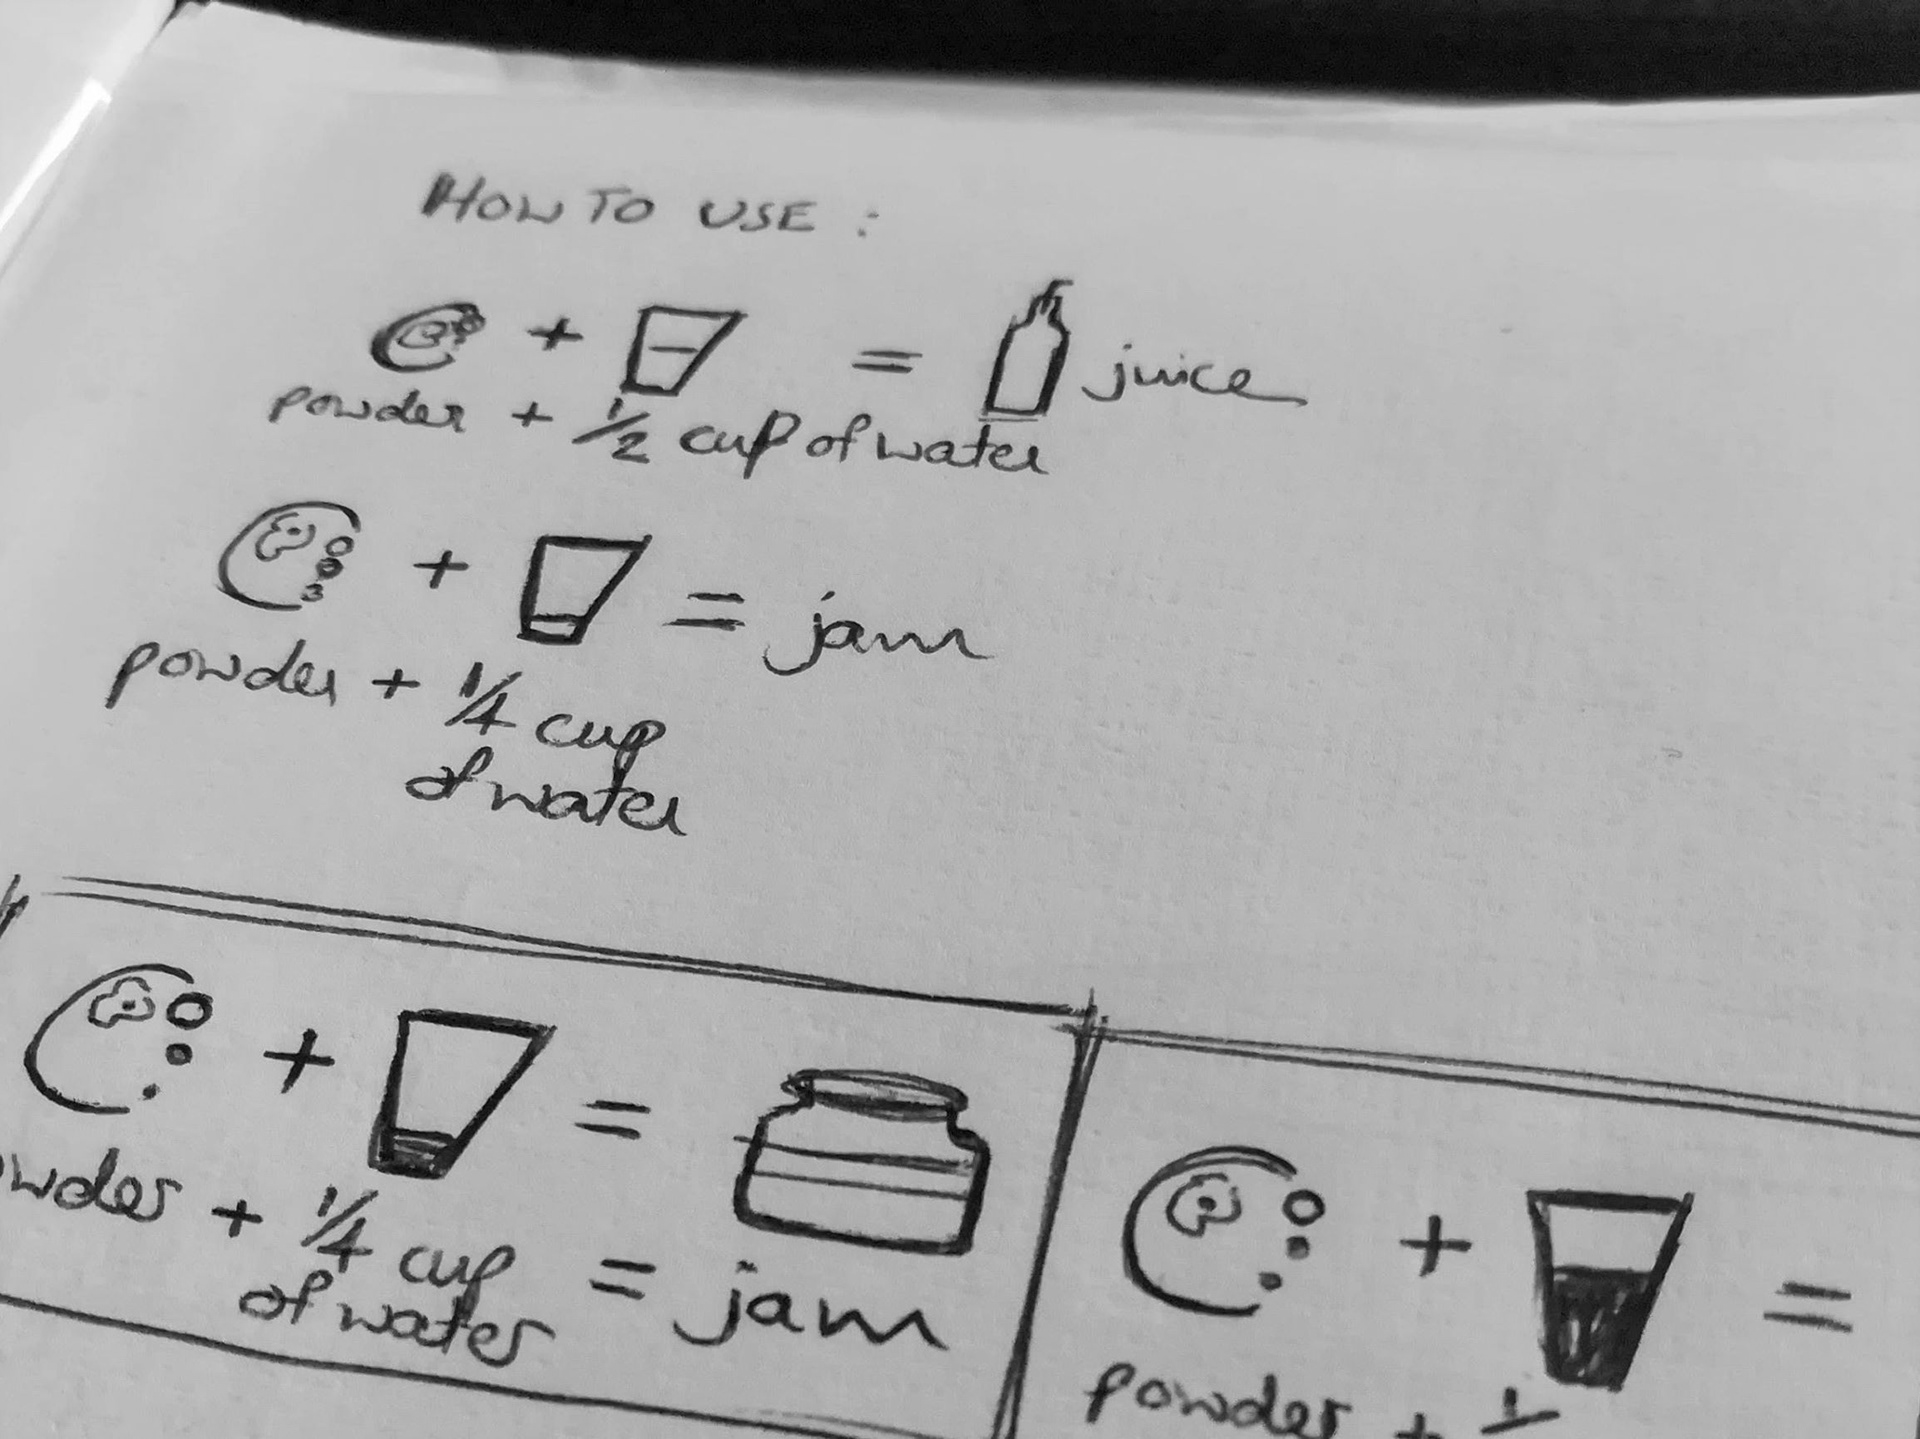 HOW TO USE :
+ = juice
powder + 1/2 cup of water
+ = jam
powder + 1/4 cup
of water
+ =
+ 1/4 cup = jam
of water
+ =
powder +